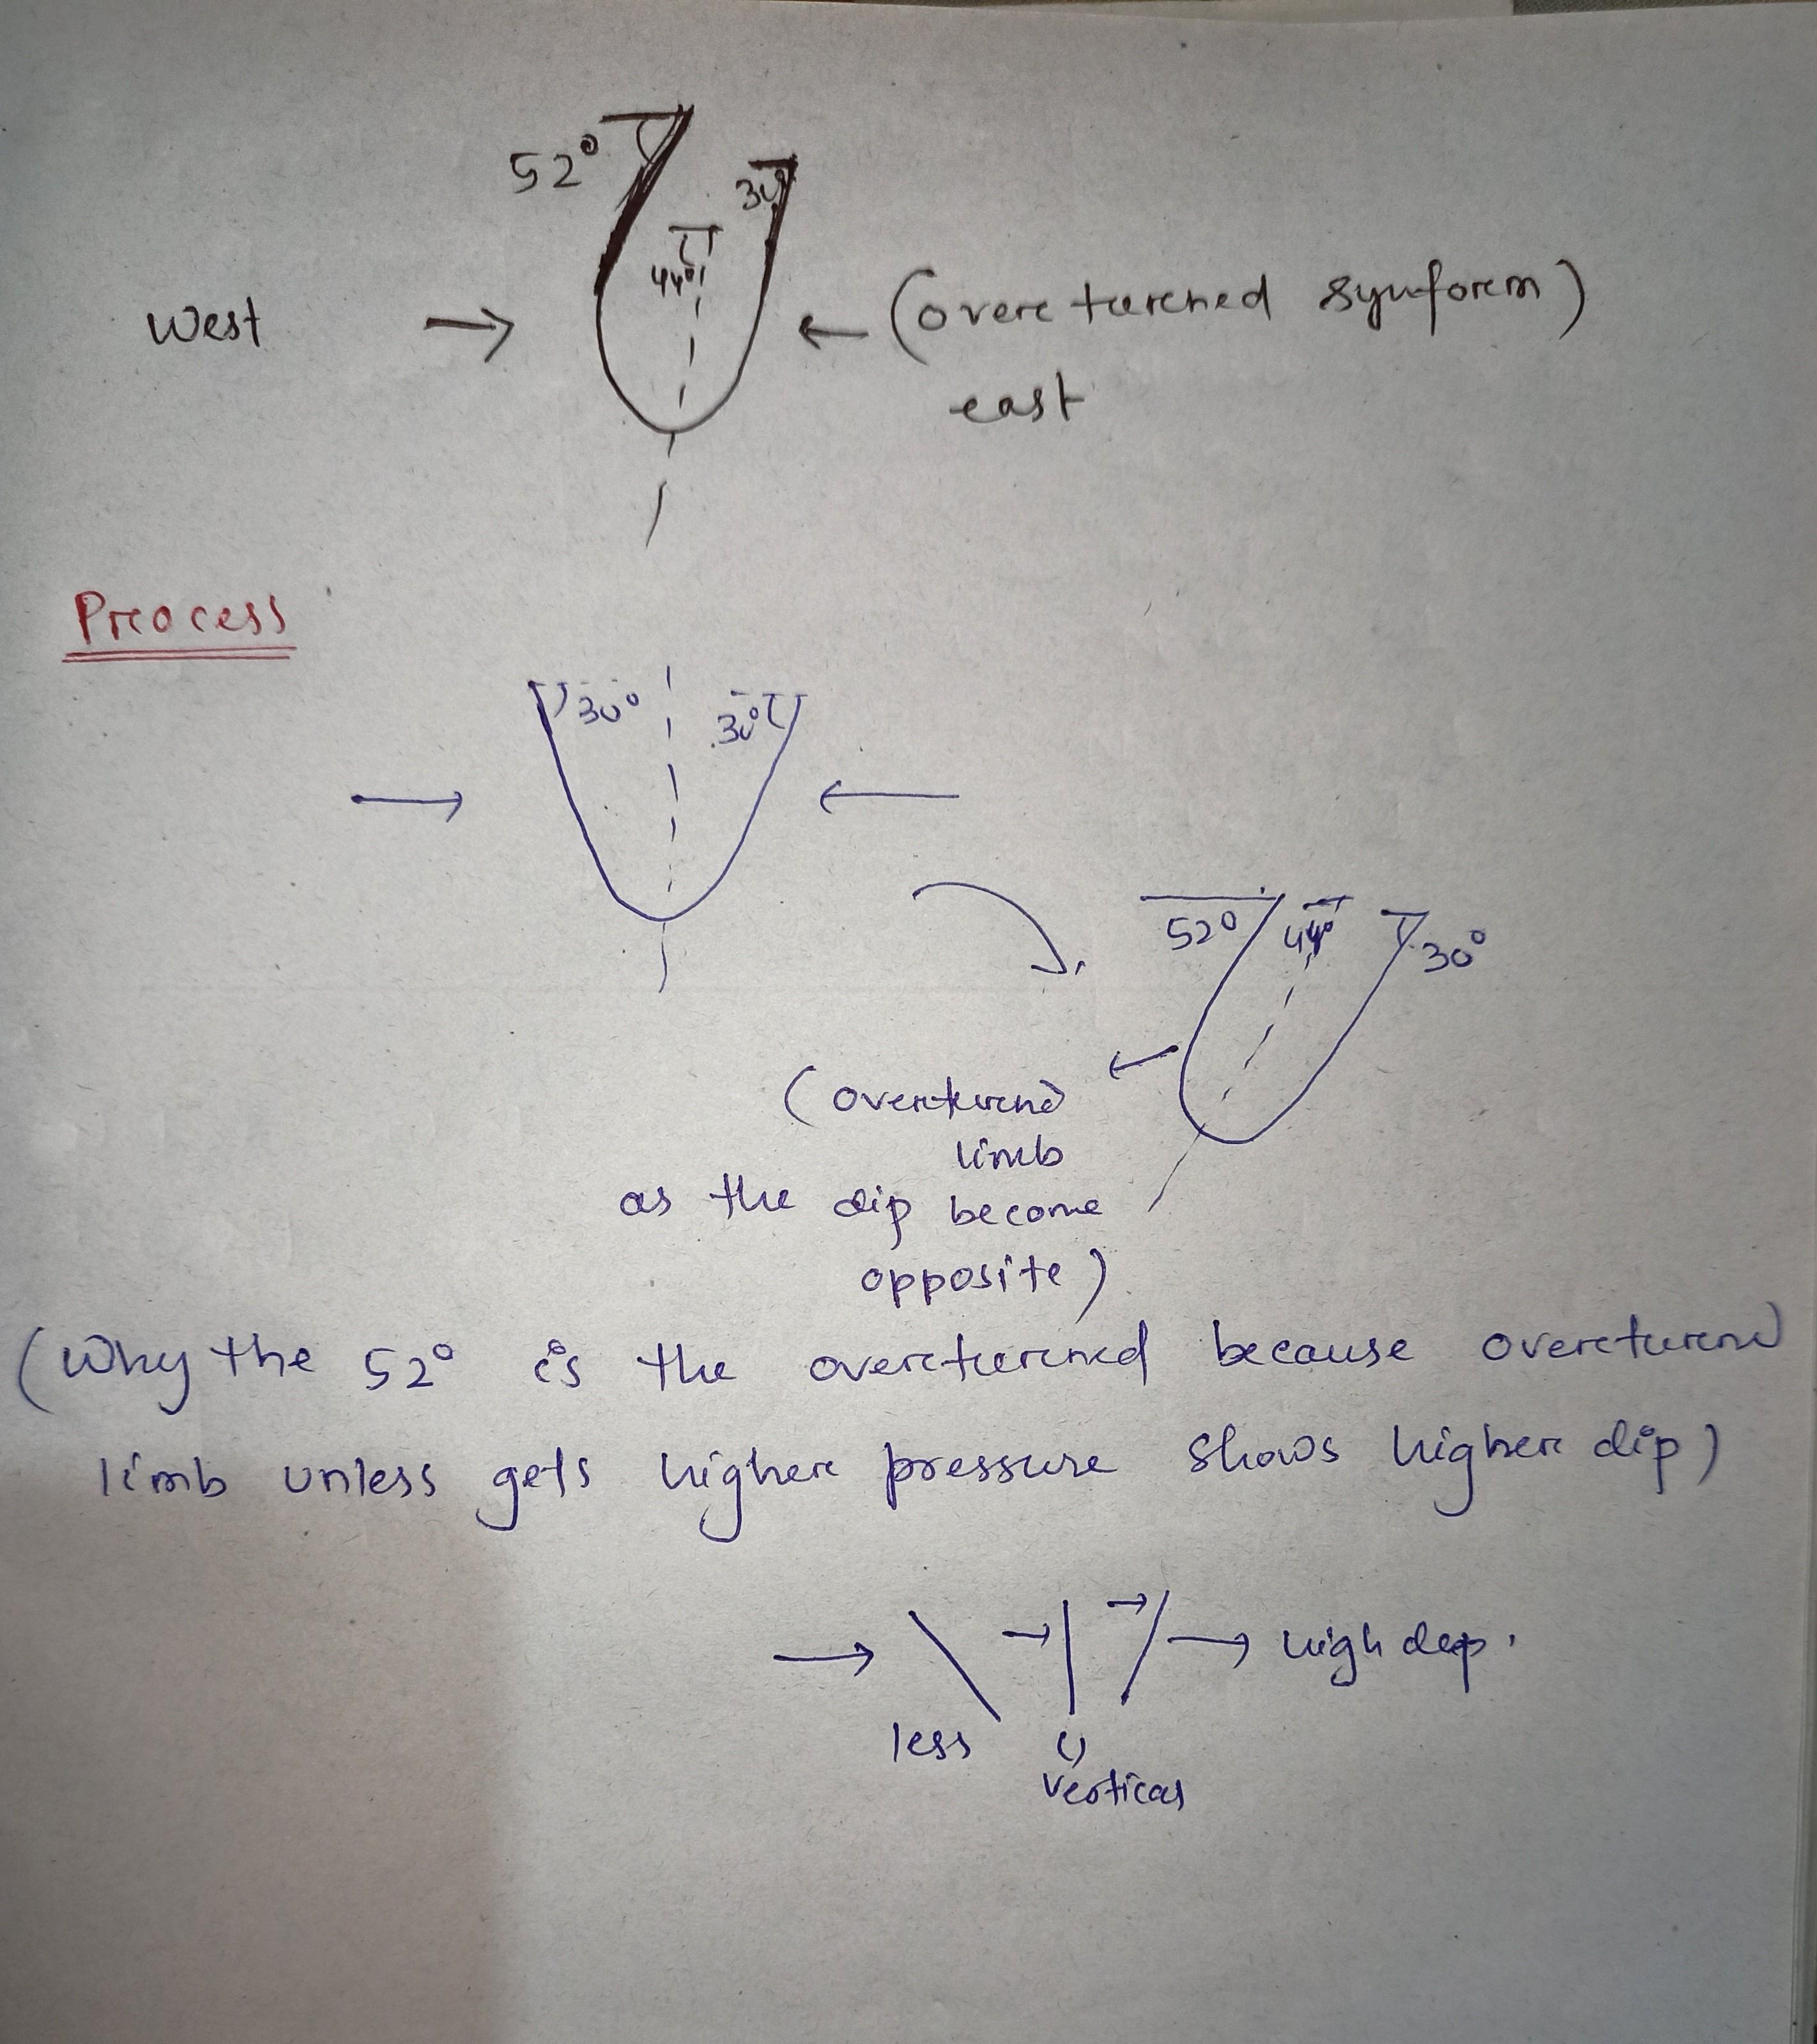 52°
30°
44°
West → ← (overturned synform)
east
Process
30° 30°
→ ←
52° 44° 30°
(overturned
limb
as the dip become
opposite)
(Why the 52° is the overturned because overturend
limb unless gets higher pressure shows higher dip)
→ high dip.
less
vertical